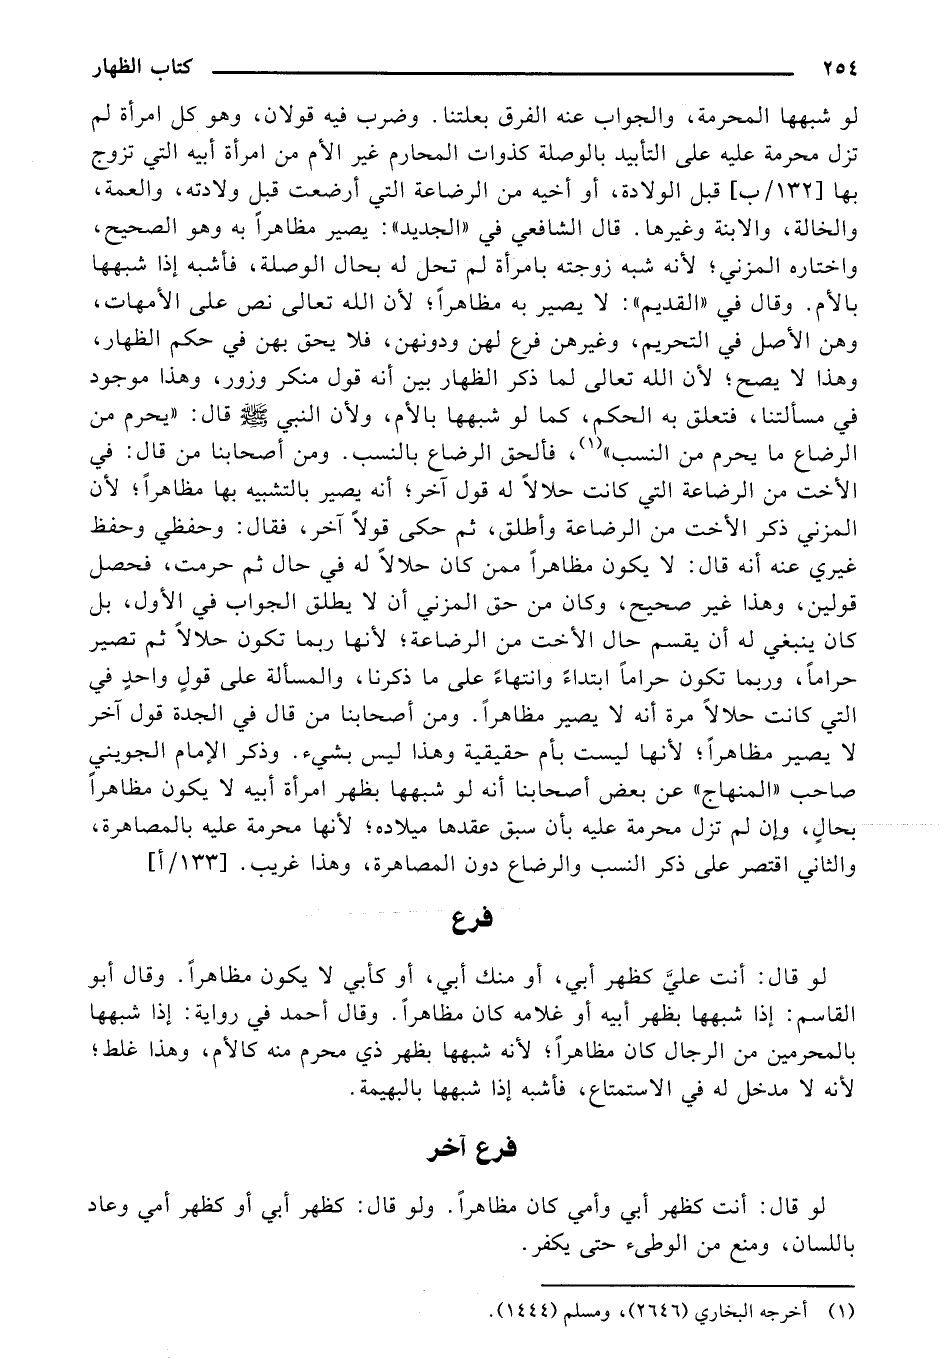 ٢٥٤ كتاب الظهار
لو شبهها المحرمة، والجواب عنه الفرق بعلتنا. وضرب فيه قولان، وهو كل امرأة لم
تزل محرمة عليه على التأبيد بالوصلة كذوات المحارم غير الأم من امرأة أبيه التي تزوج
بها [١٣٢/ب] قبل الولادة، أو أخيه من الرضاعة التي أرضعت قبل ولادته، والعمة،
والخالة، والابنة وغيرها. قال الشافعي في «الجديد»: يصير مظاهراً به وهو الصحيح،
واختاره المزني؛ لأنه شبه زوجته بامرأة لم تحل له بحال الوصلة، فأشبه إذا شبهها
بالأم. وقال في «القديم»: لا يصير به مظاهراً؛ لأن الله تعالى نص على الأمهات،
وهن الأصل في التحريم، وغيرهن فرع لهن ودونهن، فلا يحق بهن في حكم الظهار،
وهذا لا يصح؛ لأن الله تعالى لما ذكر الظهار بين أنه قول منكر وزور، وهذا موجود
في مسألتنا، فتعلق به الحكم، كما لو شبهها بالأم، ولأن النبي ﷺ قال: «يحرم من
الرضاع ما يحرم من النسب»(١)، فألحق الرضاع بالنسب. ومن أصحابنا من قال: في
الأخت من الرضاعة التي كانت حلالاً له قول آخر؛ أنه يصير بالتشبيه بها مظاهراً؛ لأن
المزني ذكر الأخت من الرضاعة وأطلق، ثم حكى قولاً آخر، فقال: وحفظي وحفظ
غيري عنه أنه قال: لا يكون مظاهراً ممن كان حلالاً له في حال ثم حرمت، فحصل
قولين، وهذا غير صحيح، وكان من حق المزني أن لا يطلق الجواب في الأول، بل
كان ينبغي له أن يقسم حال الأخت من الرضاعة؛ لأنها ربما تكون حلالاً ثم تصير
حراماً، وربما تكون حراماً ابتداءً وانتهاءً على ما ذكرنا، والمسألة على قولٍ واحدٍ في
التي كانت حلالاً مرة أنه لا يصير مظاهراً. ومن أصحابنا من قال في الجدة قول آخر
لا يصير مظاهراً؛ لأنها ليست بأم حقيقية وهذا ليس بشيء. وذكر الإمام الجويني
صاحب «المنهاج» عن بعض أصحابنا أنه لو شبهها بظهر امرأة أبيه لا يكون مظاهراً
بحالٍ، وإن لم تزل محرمة عليه بأن سبق عقدها ميلاده؛ لأنها محرمة عليه بالمصاهرة،
والثاني اقتصر على ذكر النسب والرضاع دون المصاهرة، وهذا غريب. [١٣٣/أ]
فرع
لو قال: أنت عليَّ كظهر أبي، أو منك أبي، أو كأبي لا يكون مظاهراً. وقال أبو
القاسم: إذا شبهها بظهر أبيه أو غلامه كان مظاهراً. وقال أحمد في رواية: إذا شبهها
بالمحرمين من الرجال كان مظاهراً؛ لأنه شبهها بظهر ذي محرم منه كالأم، وهذا غلط؛
لأنه لا مدخل له في الاستمتاع، فأشبه إذا شبهها بالبهيمة.
فرع آخر
لو قال: أنت كظهر أبي وأمي كان مظاهراً. ولو قال: كظهر أبي أو كظهر أمي وعاد
باللسان، ومنع من الوطىء حتى يكفر.
(١) أخرجه البخاري (٢٦٤٦)، ومسلم (١٤٤٤).